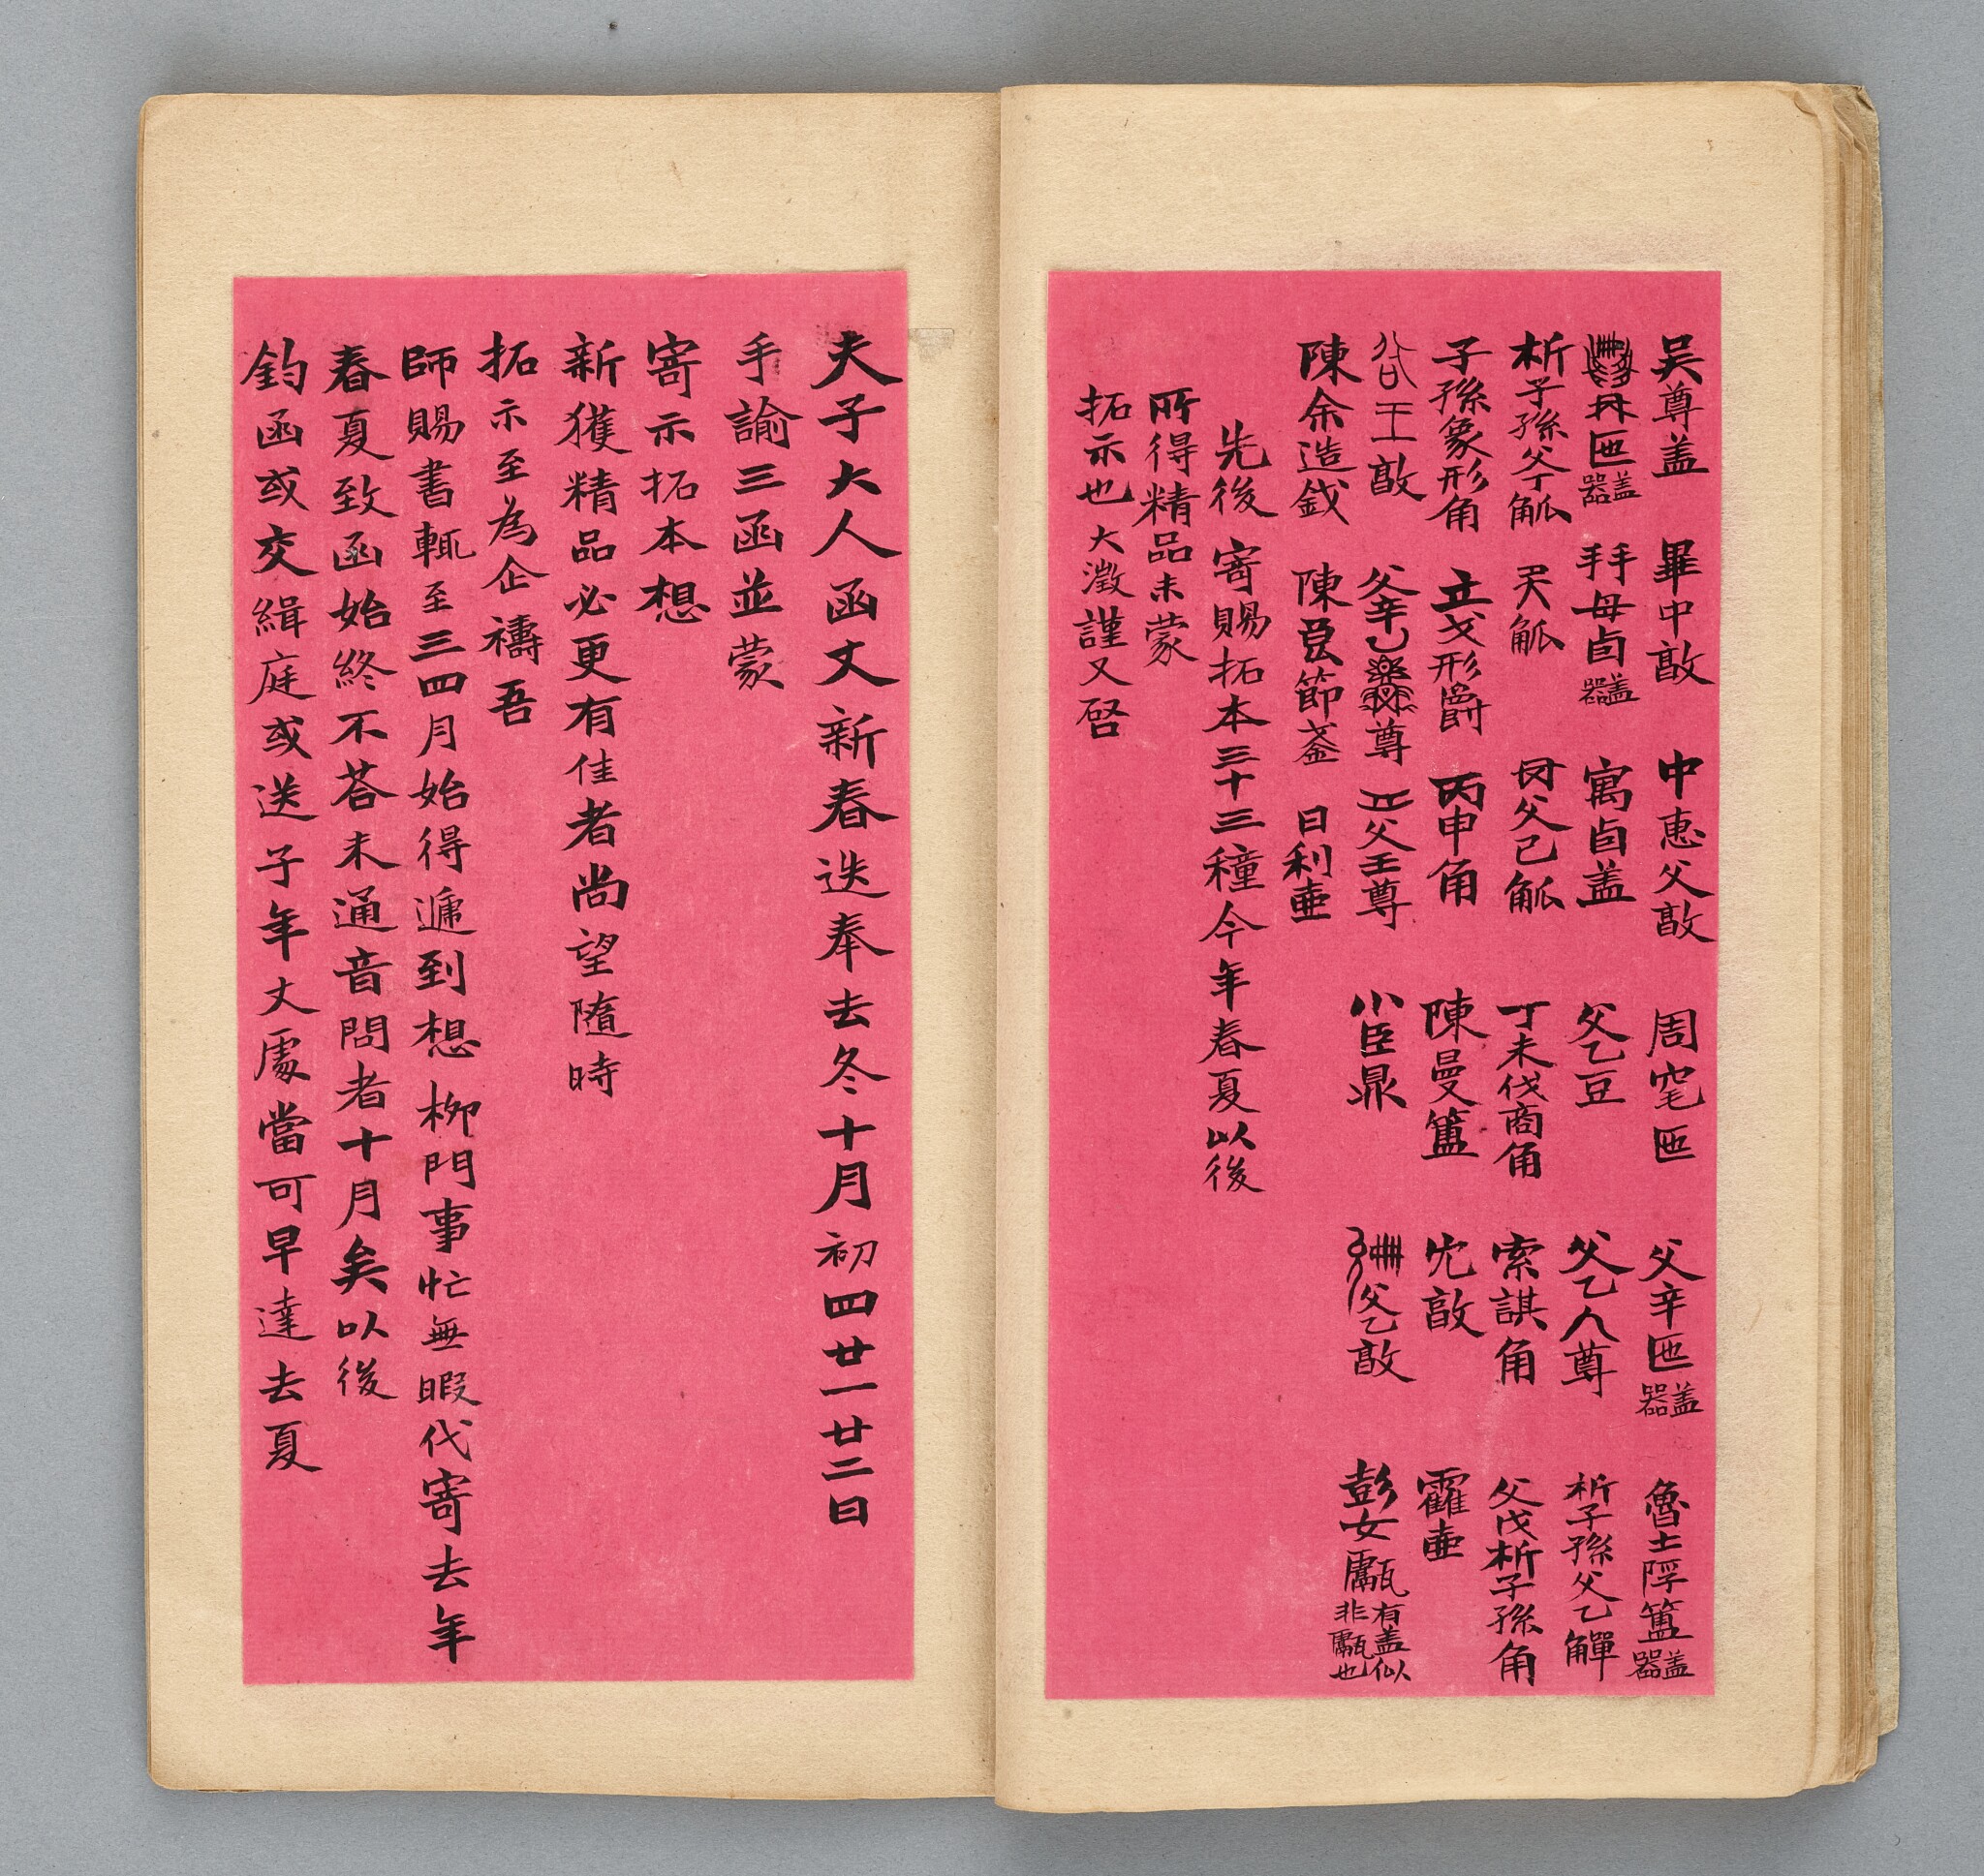 吴尊盖　畢中敦　中惠父敦　周窀匜　父辛匜盖器　魯士浮簠盖器
匜盖器　母卣盖器　寓卣盖　父乙豆　父乙人尊　析子孫父乙觶
析子孫父丁觚　天觚　父己觚　丁未伐商角　索諆角　父戊析子孫角
子孫象形角　立戈形爵　丙申角　陳曼簠　敦　霍壷
王敦　父辛尊　父壬尊　小臣鼎　父乙敦　彭女甗有盖似非甗也
陳余造鉞　陳節釜　日利壷
先後　寄賜拓本三十三種今年春夏以後
所得精品未蒙
拓示也大澂謹又啓
夫子大人函丈新春迭奉去冬十月初四廿一廿二日
手諭三函並蒙
寄示拓本想
新獲精品必更有佳者尚望隨時
拓示至為企禱吾
師賜書輒至三四月始得遞到想柳門事忙無暇代寄去年
春夏致函始終不荅未通音問者十月矣以後
鈞函或交緝庭或送子年丈處當可早達去夏